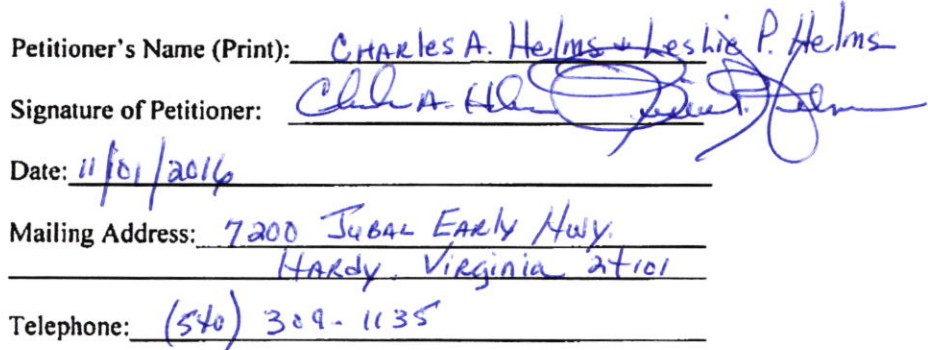 Petitioner's Name (Print): CHARles A. Helms & Leslie P. Helms
Signature of Petitioner:
Date: 11/01/2016
Mailing Address: 7200 JUBAL EARly Hwy.
HARdy, Virginia 24101
Telephone: (540) 309-1135